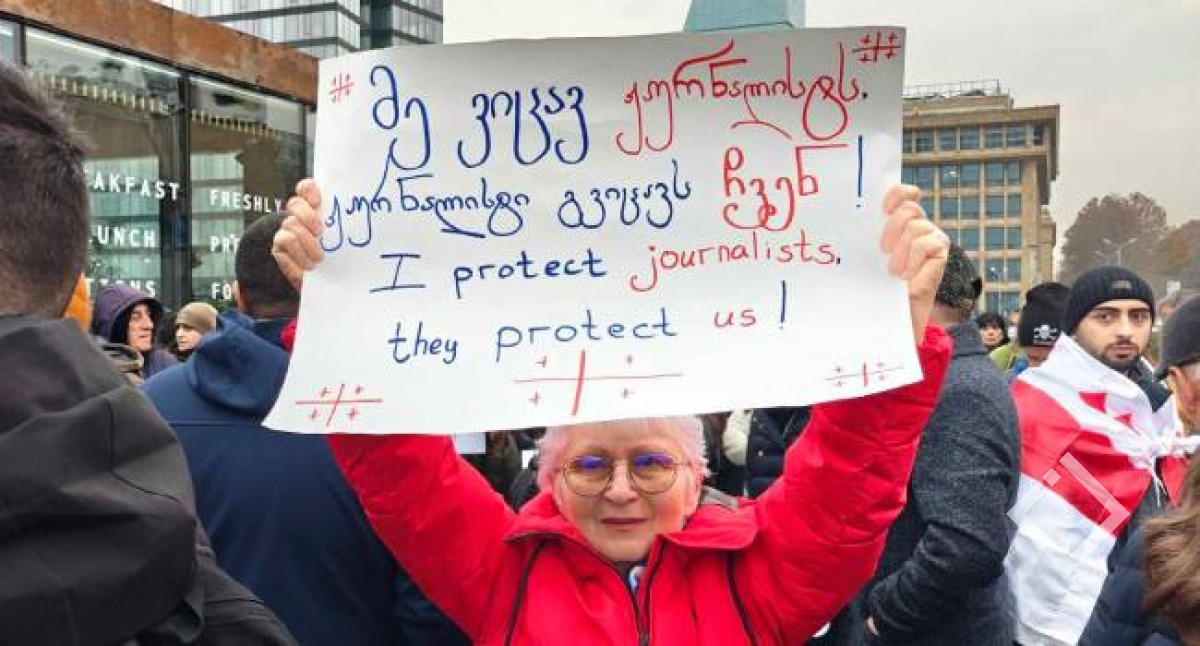 მე ვიცავ ჟურნალისტს.
ჟურნალისტი გვიცავს ჩვენ!
I protect journalists,
they protect us!
EAKFAST
UNCH
FRESHLY